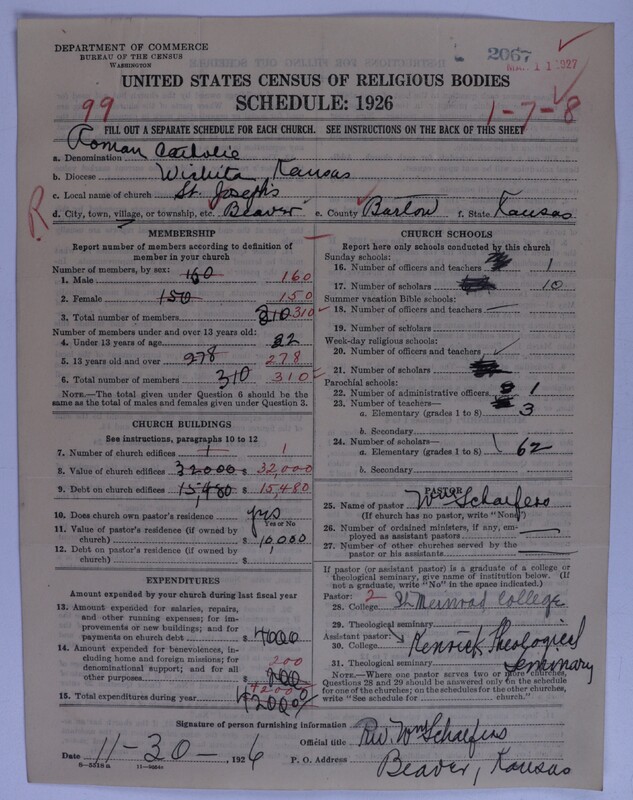 DEPARTMENT OF COMMERCE
BUREAU OF THE CENSUS
WASHINGTON
2067
MAR 11 1927
UNITED STATES CENSUS OF RELIGIOUS BODIES
SCHEDULE: 1926
99
1-7-8
FILL OUT A SEPARATE SCHEDULE FOR EACH CHURCH. SEE INSTRUCTIONS ON THE BACK OF THIS SHEET
a. Denomination Roman Catholic
b. Diocese Wichita, Kansas
c. Local name of church St. Joseph's
R
d. City, town, village, or township, etc. Beaver e. County Barton f. State Kansas
MEMBERSHIP
Report number of members according to definition of member in your church
Number of members, by sex:
1. Male 160 160
2. Female 150 150
3. Total number of members 310 310
Number of members under and over 13 years old:
4. Under 13 years of age 32
5. 13 years old and over 278 278
6. Total number of members 310 310
NOTE.—The total given under Question 6 should be the same as the total of males and females given under Question 3.
CHURCH BUILDINGS
See instructions, paragraphs 10 to 12
7. Number of church edifices 1 1
8. Value of church edifices 32000 $ 32,000
9. Debt on church edifices 15,480 $ 15,480
10. Does church own pastor's residence? yes
Yes or No
11. Value of pastor's residence (if owned by church) $ 10,000
12. Debt on pastor's residence (if owned by church) $
EXPENDITURES
Amount expended by your church during last fiscal year
13. Amount expended for salaries, repairs, and other running expenses; for improvements or new buildings; and for payments on church debt $ 4000
14. Amount expended for benevolences, including home and foreign missions; for denominational support; and for all other purposes $ 200
15. Total expenditures during year $ 4200
CHURCH SCHOOLS
Report here only schools conducted by this church
Sunday schools:
16. Number of officers and teachers 1
17. Number of scholars 10
Summer vacation Bible schools:
18. Number of officers and teachers
19. Number of scholars
Week-day religious schools:
20. Number of officers and teachers
21. Number of scholars
Parochial schools:
22. Number of administrative officers 1
23. Number of teachers—
a. Elementary (grades 1 to 8) 3
b. Secondary
24. Number of scholars—
a. Elementary (grades 1 to 8) 62
b. Secondary
PASTOR
25. Name of pastor Wm Schaefers
(If church has no pastor, write "None")
26. Number of ordained ministers, if any, employed as assistant pastors
27. Number of other churches served by the pastor or his assistants
If pastor (or assistant pastor) is a graduate of a college or theological seminary, give name of institution below. (If not a graduate, write "No" in the space indicated.)
Pastor: 2
28. College St Meinrad College
29. Theological seminary
Assistant pastor: Kenrick Theological
30. College
31. Theological seminary Seminary
NOTE.—Where one pastor serves two or more churches, Questions 28 and 29 should be answered only on the schedule for one of the churches; on the schedules for the other churches, write "See schedule for church."
Signature of person furnishing information
Official title Rev Wm Schaefers
Date 11-30-, 1926 P. O. Address Beaver, Kansas
8-5516a